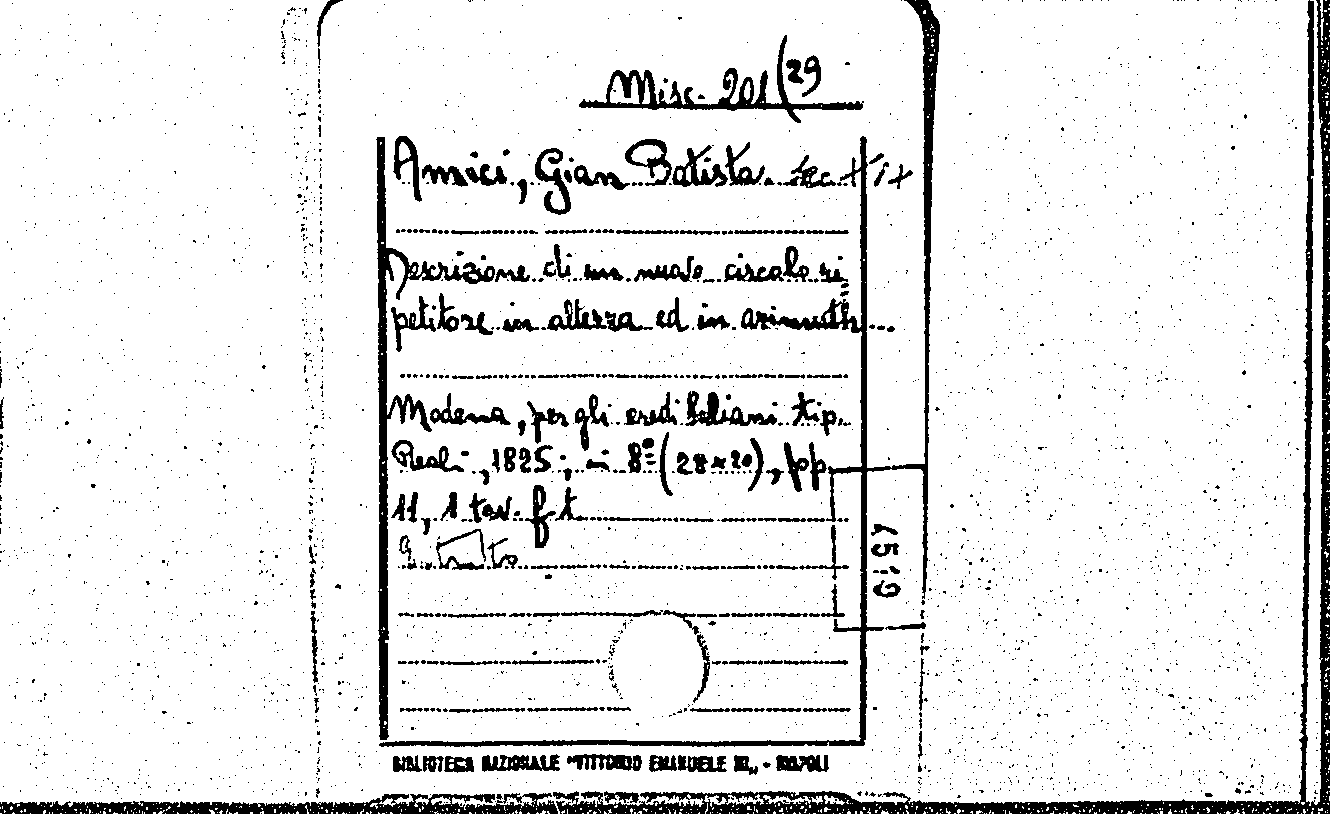 Misc. 201 (29
Amici, Gian Batista. sec
Descrizione di un nuovo circolo ri
petitore in altezza ed in azimuth...
Modena, per gli eredi Soliani tip.
Reali, 1825; in 8º (28x20), pp.
11, 1 tav. f. t.
BIBLIOTECA NAZIONALE "VITTORIO EMANUELE III,, - NAPOLI